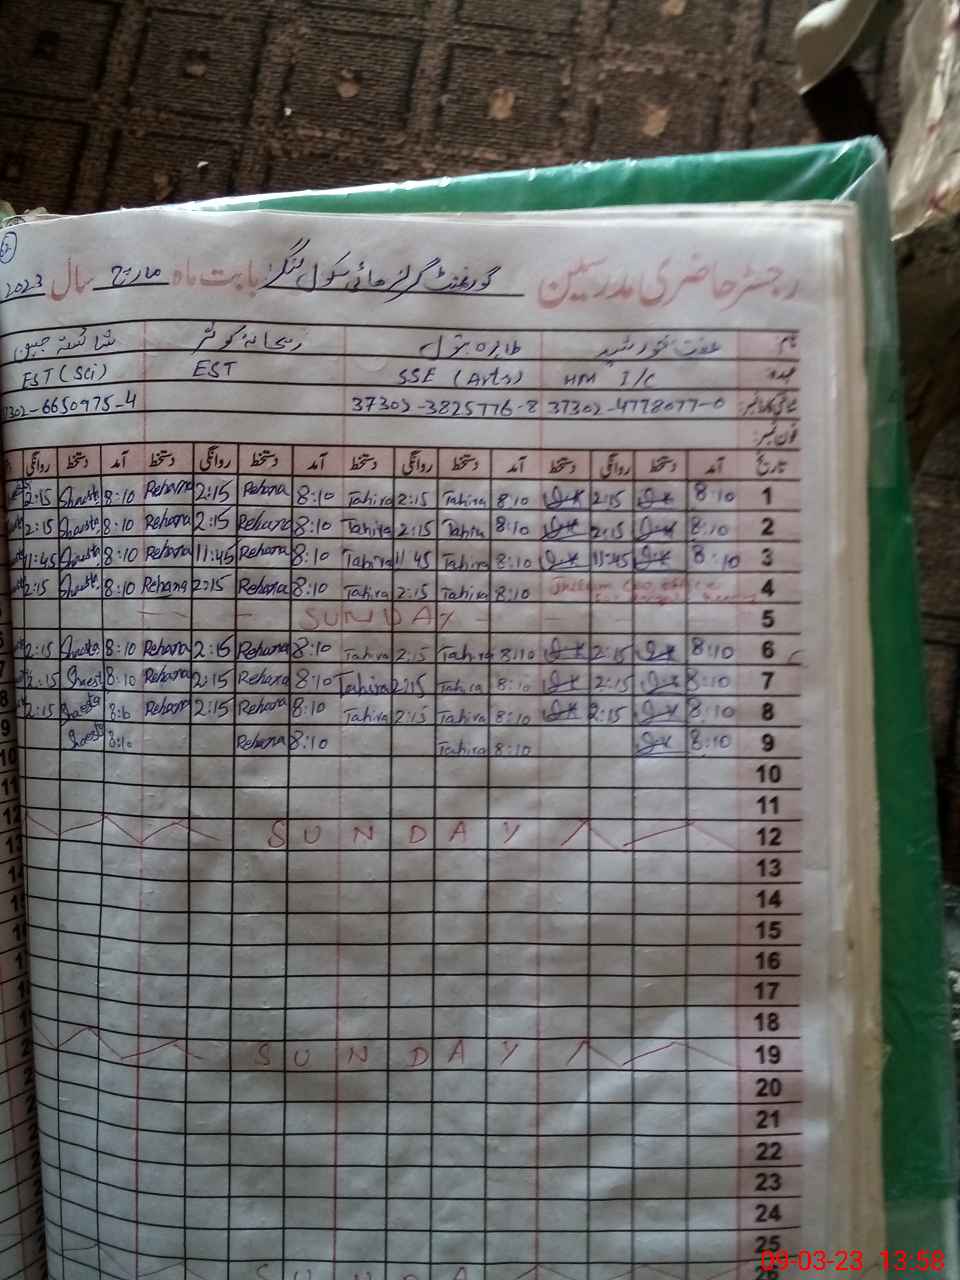 رجسٹر حاضری مدرسین گورنمنٹ گرلز ہائی سکول بابت ماہ مارچ سال 2023
نام عفت خورشید طاہرہ بتول ریحانہ کوثر شائستہ جبین
عہدہ HM I/C SSE (Arts) EST EST (Sci)
شناختی کارڈ نمبر: 37302-4778077-0 37302-3825776-8 37302-6650975-4
فون نمبر:
تاریخ آمد دستخط روانگی دستخط آمد دستخط روانگی دستخط آمد دستخط روانگی دستخط آمد دستخط روانگی
1 8:10 2:15 8:10 Tahira 2:15 Tahira 8:10 Rehana 2:15 Rehana 8:10 Shaista 2:15
2 8:10 2:15 8:10 Tahira 2:15 Tahira 8:10 Rehana 2:15 Rehana 8:10 Shaista 2:15
3 8:10 11:45 8:10 Tahira 11:45 Tahira 8:10 Rehana 11:45 Rehana 8:10 Shaista 11:45
4 8:10 Tahira 2:15 Tahira 8:10 Rehana 2:15 Rehana 8:10 Shaista 2:15
5 SUNDAY
6 8:10 2:15 8:10 Tahira 2:15 Tahira 8:10 Rehana 2:15 Rehana 8:10 Shaista 2:15
7 8:10 2:15 8:10 Tahira 2:15 Tahira 8:10 Rehana 2:15 Rehana 8:10 Shaista 2:15
8 8:10 2:15 8:10 Tahira 2:15 Tahira 8:10 Rehana 2:15 Rehana 8:10 Shaista 2:15
9 8:10 8:10 Tahira 8:10 Rehana 8:10 Shaista
10
11
12 SUNDAY
13
14
15
16
17
18
19 SUNDAY
20
21
22
23
24
25
26 SUNDAY
09-03-23 13:58